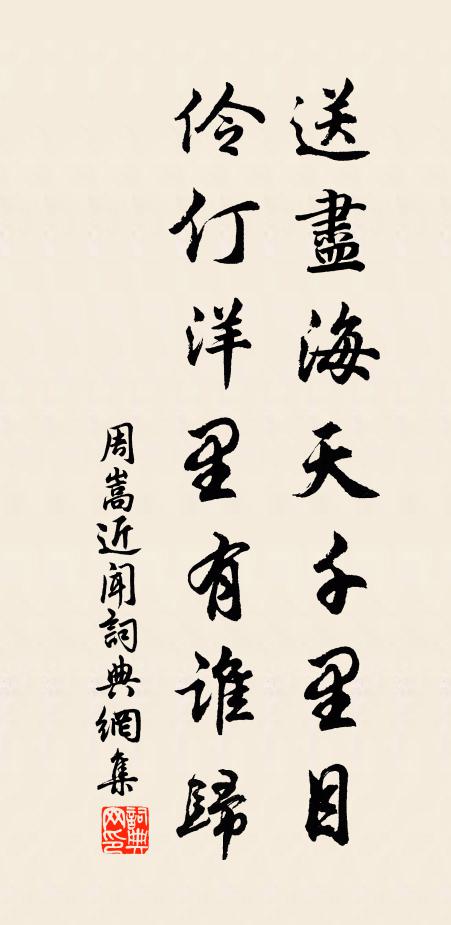 送盡海天千里目
伶仃洋里有誰歸
周嵩近聞詞典網集
詞典網印